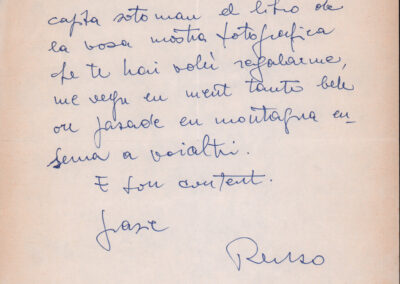 capita soto man el libro de
la vosa mostra fotografica
che te hai volù regalarme,
me vegn en ment tante bele
ore pasade en montagna en-
sema a voialtri.
E son content.
Grazie
Renzo